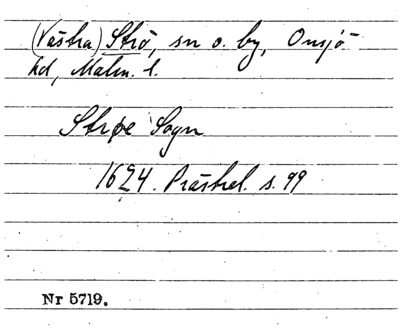 (Västra) Strö, sn o. by, Onsjö
hd, Malm. l.
Strøe Sogn
1624. Prästrel. s. 99
Nr 5719.